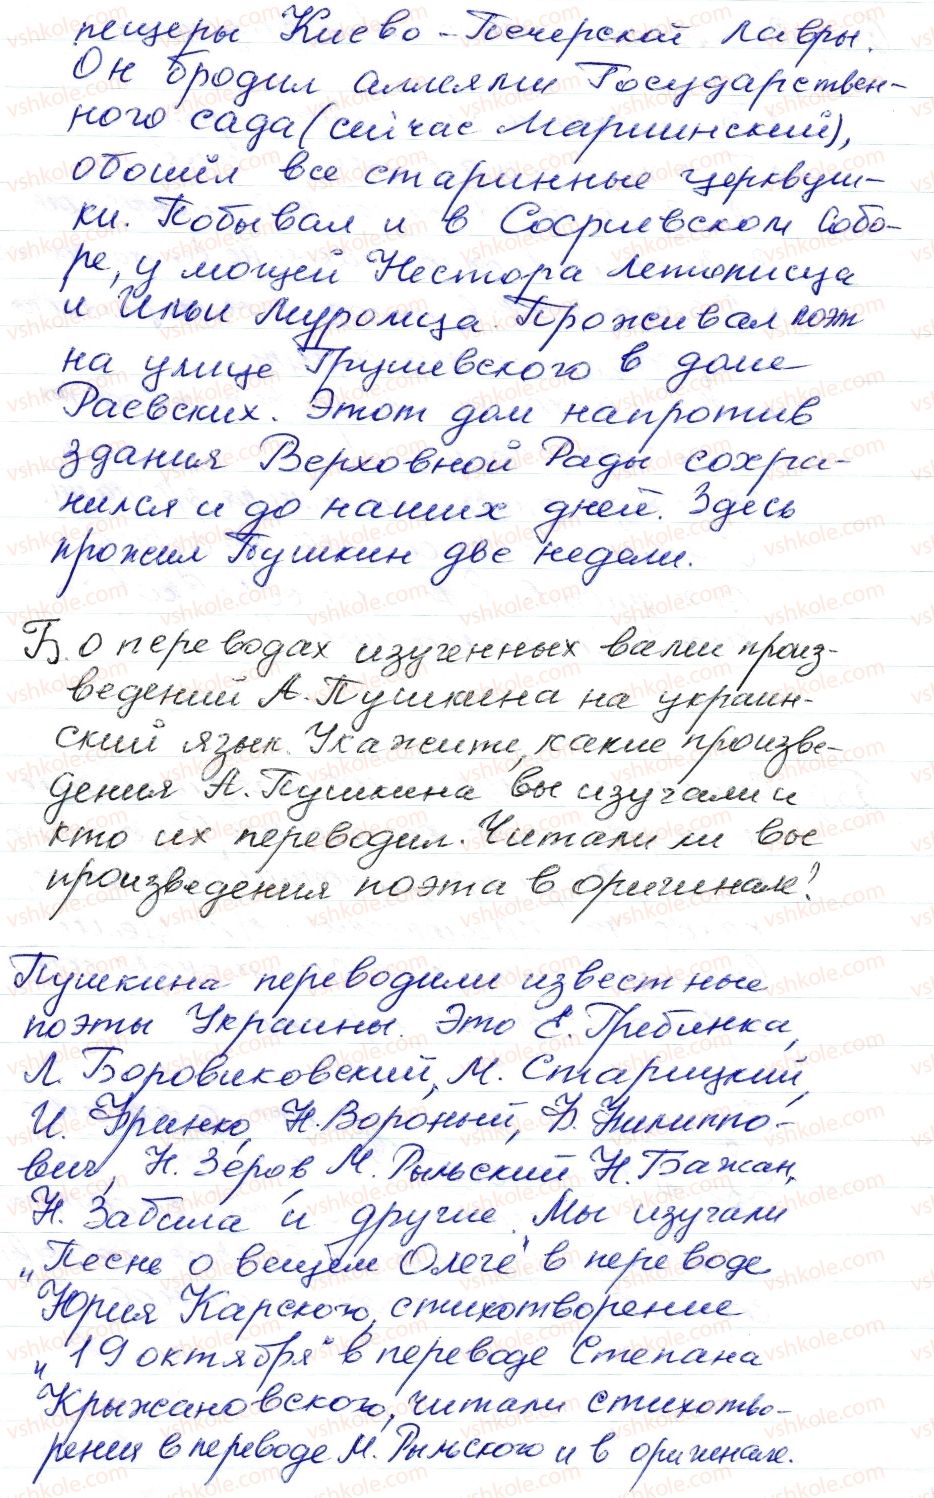 пещеры Киево-Печерской Лавры.
Он бродил аллеями Государствен-
ного сада (сейчас Мариинский),
обошёл все старинные церквуш-
ки. Побывал и в Софиевском Собо-
ре, у мощей Нестора Летописца
и Ильи Муромца. Проживал поэт
на улице Грушевского в доме
Раевских. Этот дом напротив
здания Верховной Рады сохра-
нился и до наших дней. Здесь
прожил Пушкин две недели.
Б. О переводах изученных вами произ-
ведений А. Пушкина на украин-
ский язык. Укажите, какие произве-
дения А. Пушкина вы изучали и
кто их переводил. Читали ли вы
произведения поэта в оригинале?
Пушкина переводили известные
поэты Украины. Это Е. Гребинка,
Л. Боровиковский, М. Старицкий,
И. Франко, Н. Вороный, П. Филиппо-
вич, Н. Зеров, М. Рыльский, Н. Бажан,
Н. Забила и другие. Мы изучали
„Песнь о вещем Олеге" в переводе
Юрия Карского, стихотворение
„19 октября" в переводе Степана
Крыжановского, читали стихотво-
рения в переводе М. Рыльского и в оригинале.